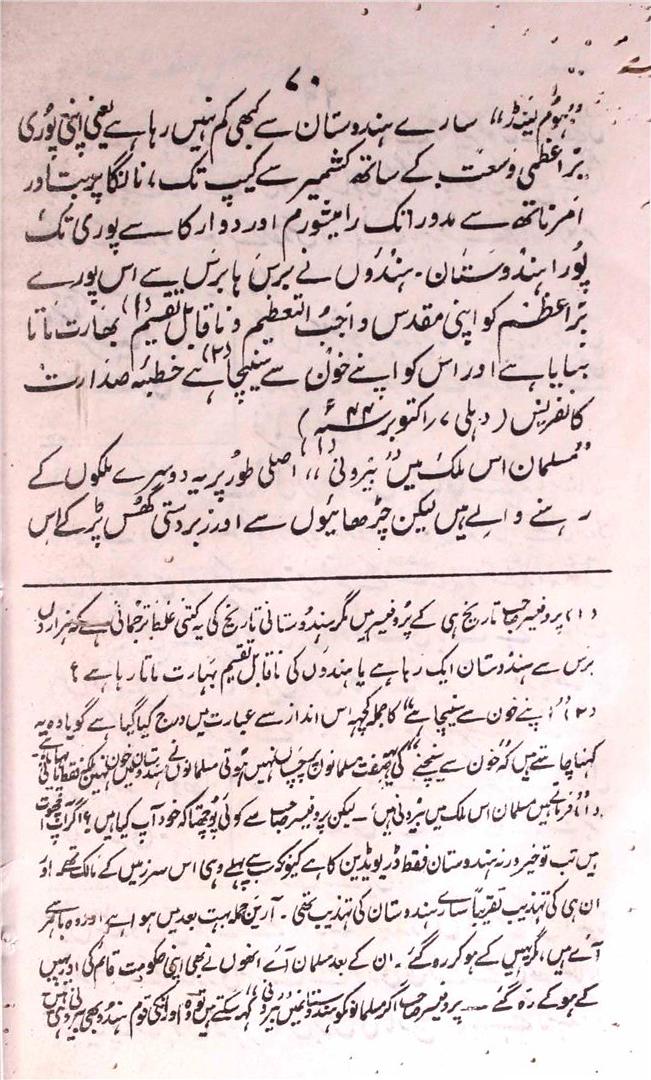 ۷۰
”ہوم لینڈ“ سارے ہندوستان سے کبھی کم نہیں رہا ہے یعنی اپنی پوری
برِ اعظمی وسعت کے ساتھ کشمیر سے کیپ تک، نانگا پربت اور
امرناتھ سے مدورا تک رامیشورم اور دوارکا سے پوری تک
پورا ہندوستان۔ ہندوں نے برس ہا برس سے اس پورے
برِ اعظم کو اپنی مقدس واجب التعظیم و ناقابل تقسیم (۱) بھارت ماتا
بنایا ہے اور اس کو اپنے خون سے سینچا (۲) ہے خطبۂ صدارت
کانفرنس (دہلی ۷ اکتوبر ۴۴ء)
”مسلمان اس ملک میں ”بیرونی“ (۱) اصلی طور پر یہ دوسرے ملکوں کے
رہنے والے ہیں لیکن چڑھائیوں سے اور زبردستی گھس پڑ کے اس
(۱) پروفیسر صاحب تاریخ ہی کے پروفیسر ہیں مگر ہندوستانی تاریخ کی یہ کتنی غلط ترجمانی ہے کہ ہزاروں
برس سے ہندوستان ایک رہا ہے یا ہندوں کی ناقابل تقسیم بہارت ماتا رہا ہے ؟
(۲) ”اپنے خون سے سینچا ہے“ کا جملہ کچھ اس انداز سے عبارت میں درج کیا گیا ہے گویا وہ یہ
کہنا چاہتے ہیں کہ ”خون سے سینچنے“ کی صفت مسلمانوں پر چسپاں نہیں ہوتی مسلمانوں نے ہندوستان میں خون نہیں بلکہ فقط پانی بہایا ہے
(۱) فرماتے ہیں مسلمان اس ملک میں بیرونی ہیں۔ لیکن پروفیسر صاحب سے کوئی پوچھتا کہ خود آپ کیا ہیں ؟ اگر آپ اچھوت
ہیں تب تو خیر ورنہ ہندوستان فقط ڈریویڈین کا ہے کیونکہ سب سے پہلے وہی اس سرزمین کے مالک تھے اور
ان ہی کی تہذیب تقریباً سارے ہندوستان کی تہذیب تھی۔ آرین حملہ بہت بعد میں ہوا ہے اور وہ باہر سے
آئے ہیں، مگر یہیں کے ہو کر رہ گئے۔ ان کے بعد مسلمان آئے انھوں نے بھی اپنی حکومت قائم کی اور یہیں
کے ہو کے رہ گئے۔ پروفیسر صاحب اگر مسلمانوں کو ہندوستان میں ”بیرونی“ کہہ سکتے ہیں تو وہ اور انکی قوم ہندو بھی بیرونی ہی ہیں